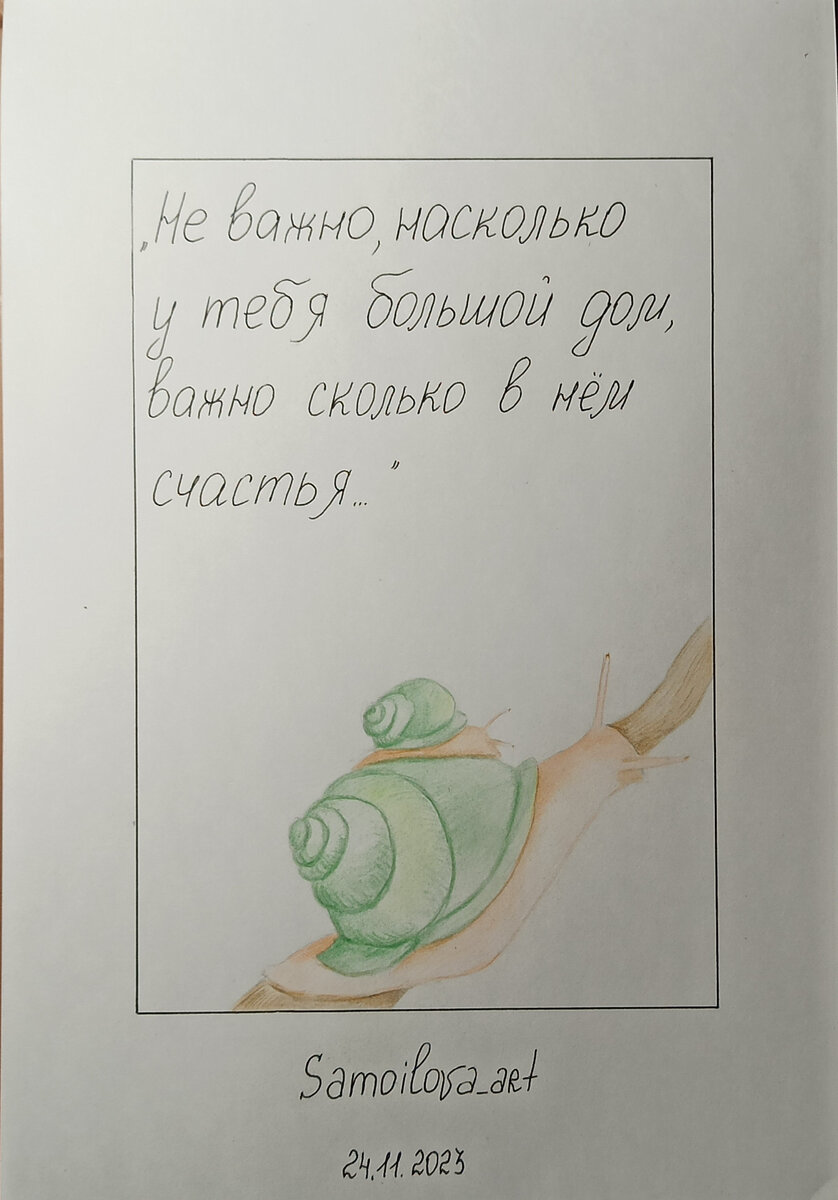 „Не важно, насколько
у тебя большой дом,
важно сколько в нём
счастья..."
Samoilova_art
24.11.2023